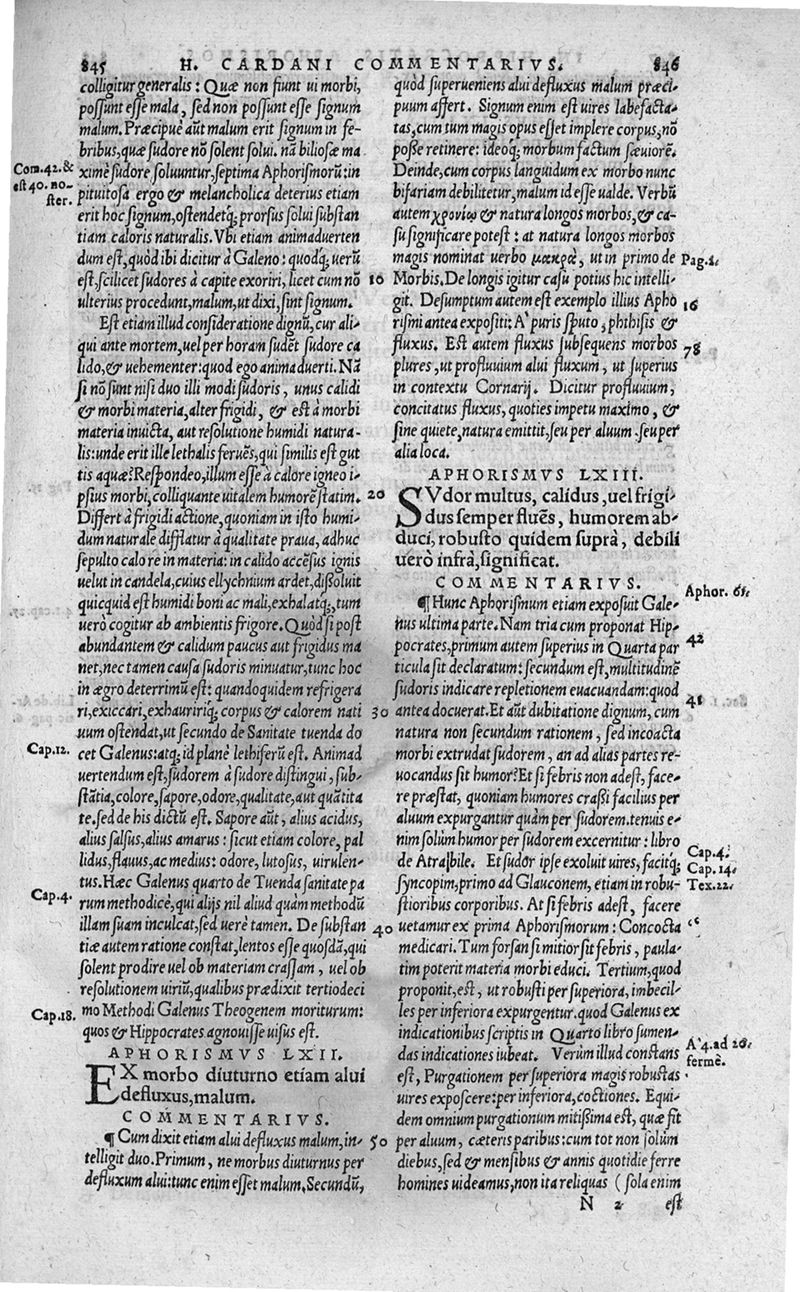 845 H. CARDANI COMMENTARIVS. 846
colligitur generalis: Quæ non fiunt ui morbi,
possunt esse mala, sed non possunt esse signum
malum. Præcipuè aũt malum erit signum in fe-
bribus, quæ sudore nõ solent solui. nã biliosæ ma
Com. 42. &
est 40. no-
ster.
ximè sudore soluuntur, septima Aphorismorũ: in
pituitosa ergo & melancholica deterius etiam
erit hoc signum, ostendetq́; prorsus solui substan
tiam caloris naturalis. Vbi etiam animaduerten
dum est, quòd ibi dicitur à Galeno: quodq́; uerũ
est, scilicet sudores à capite exoriri, licet cum nõ
10
ulterius procedunt, malum, ut dixi, sint signum.
Est etiam illud consideratione dignũ, cur ali-
qui ante mortem, uel per horam sudẽt sudore ca
lido, & uehementer: quod ego animaduerti. Nã
si nõ sunt nisi duo illi modi sudoris, unus calidi
& morbi materia, alter frigidi, & est à morbi
materia inuicta, aut resolutione humidi natura-
lis: unde erit ille lethalis feruẽs, qui similis est gut
tis aquæ? Respondeo, illum esse à calore igneo i-
psius morbi, colliquante uitalem humorẽ statim.
20
Differt à frigidi actione, quoniam in isto humi-
dum naturale difflatur à qualitate praua, adhuc
sepulto calore in materia: in calido accẽsus ignis
uelut in candela, cuius ellychnium ardet, dissoluit
quicquid est humidi boni ac mali, exhalatq́;, tum
uerò cogitur ab ambientis frigore. Quòd si post
abundantem & calidum paucus aut frigidus ma
net, nec tamen causa sudoris minuatur, tunc hoc
in ægro deterrimũ est: quandoquidem refrigera
ri, exiccari, exhauririq́; corpus & calorem nati
30
uum ostendat, ut secundo de Sanitate tuenda do
Cap. 12.
cet Galenus: atq; id planè lethiferũ est. Animad
uertendum est, sudorem à sudore distingui, sub-
stãtia, colore, sapore, odore, qualitate, aut quãtita
te. sed de his dictũ est. Sapore aũt, alius acidus,
alius salsus, alius amarus: sicut etiam colore, pal
lidus, flauus, ac medius: odore, lutosus, uirulen-
tus. Hæc Galenus quarto de Tuenda sanitate pa
Cap. 4.
rum methodicè, qui alijs nil aliud quàm methodũ
illam suam inculcat, sed uerè tamen. De substan
40
tiæ autem ratione constat, lentos esse quosdã, qui
solent prodire uel ob materiam crassam, uel ob
resolutionem uiriũ, qualibus prædixit tertiodeci
Cap. 18.
mo Methodi Galenus Theogenem moriturum:
quos & Hippocrates agnouisse uisus est.
APHORISMVS LXII.
EX morbo diuturno etiam alui
defluxus, malum.
COMMENTARIVS.
¶ Cum dixit etiam alui defluxus malum, in-
50
telligit duo. Primum, ne morbus diuturnus per
defluxum alui: tunc enim esset malum. Secundũ,
quòd superueniens alui defluxus malum præci-
puum affert. Signum enim est uires labefacta-
tas, cum tum magis opus esset implere corpus, nõ
posse retinere: ideoq́; morbum factum sæuiorẽ.
Deinde, cum corpus languidum ex morbo nunc
bifariam debilitetur, malum id esse ualde. Verbũ
autem χρονίῳ & natura longos morbos, & ca-
su significare potest: at natura longos morbos
magis nominat uerbo μακρὰ, ut in primo de
Pag. 1.
Morbis. De longis igitur casu potius hic intelli-
git. Desumptum autem est exemplo illius Apho
16
rismi antea expositi: A' puris sputo, phthisis &
fluxus. Est autem fluxus subsequens morbos
78
plures, ut profluuium alui fluxum, ut superius
in contextu Cornarij. Dicitur profluuium,
concitatus fluxus, quoties impetu maximo, &
sine quiete, natura emittit, seu per aluum seu per
alia loca.
APHORISMVS LXIII.
SVdor multus, calidus, uel frigi-
dus semper fluẽs, humorem ab-
duci, robusto quidem suprà, debili
uerò infrà, significat.
COMMENTARIVS.
Aphor. 61.
¶ Hunc Aphorismum etiam exposuit Gale-
nus ultima parte. Nam tria cum proponat Hip-
42
pocrates, primum autem superius in Quarta par
ticula sit declaratum: secundum est, multitudinẽ
sudoris indicare repletionem euacuandam: quod
41
antea docuerat. Et aũt dubitatione dignum, cum
natura non secundum rationem, sed incoacta
morbi extrudat sudorem, an ad alias partes re-
uocandus sit humor? Et si febris non adest, face-
re præstat, quoniam humores crassi facilius per
aluum expurgantur quàm per sudorem. tenuis e-
nim solùm humor per sudorem excernitur: libro
Cap. 4.
de Atra bile. Et sudor ipse exoluit uires, facitq́;
Cap. 14.
syncopim, primo ad Glauconem, etiam in robu-
Tex. 22.
stioribus corporibus. At si febris adest, facere
uetamur ex prima Aphorismorum: Concocta
medicari. Tum forsan si mitior sit febris, paula-
tim poterit materia morbi educi. Tertium, quod
proponit, est, ut robusti per superiora, imbecil-
les per inferiora expurgentur. quod Galenus ex
indicationibus scriptis in Quarto libro sumen-
A' 4. ad 20.
fermè.
das indicationes iubeat. Verùm illud constans
est, Purgationem per superiora magis robustas
uires exposcere: per inferiora, coctiones. Equi-
dem omnium purgationum mitissima est, quæ fit
per aluum, cæteris paribus: cum tot non solùm
diebus, sed & mensibus & annis quotidie ferre
homines uideamus, non ita reliquas (sola enim
N 2 est